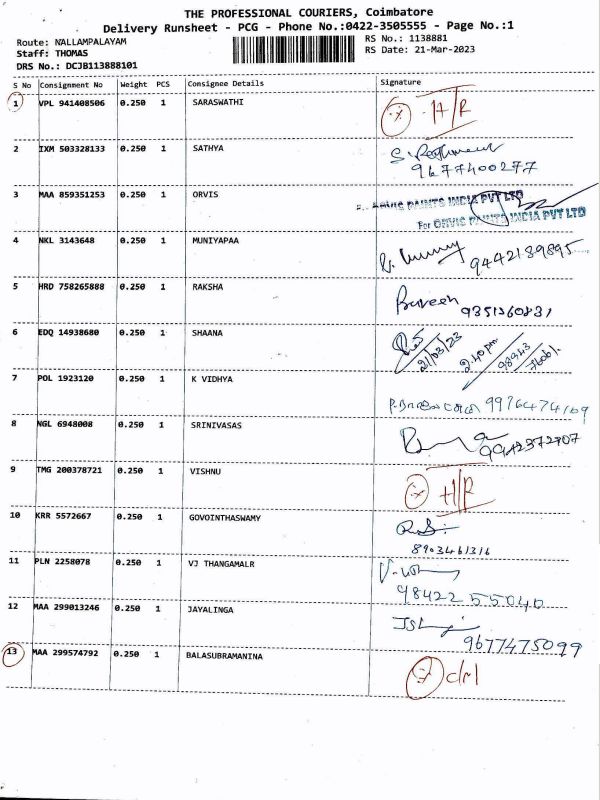 THE PROFESSIONAL COURIERS, Coimbatore
Delivery Runsheet - PCG - Phone No.:0422-3505555 - Page No.:1
Route: NALLAMPALAYAM
RS No.: 1138881
Staff: THOMAS
RS Date: 21-Mar-2023
DRS No.: DCJB113888101
S No Consignment No Weight PCS Consignee Details Signature
1 VPL 941408506 0.250 1 SARASWATHI H/R
2 IXM 503328133 0.250 1 SATHYA 9677400277
3 MAA 859351253 0.250 1 ORVIS ORVIS PAINTS INDIA PVT LTD
For ORVIS PAINTS INDIA PVT LTD
4 NKL 3143648 0.250 1 MUNIYAPAA 9442189895
5 HRD 758265888 0.250 1 RAKSHA Praveen 9351360831
6 EDQ 14938680 0.250 1 SHAANA 21/03/23 2.40 pm 98943
7 POL 1923120 0.250 1 K VIDHYA 9976474109
8 NGL 6948008 0.250 1 SRINIVASAS 9942372707
9 TMG 200378721 0.250 1 VISHNU H/R
10 KRR 5572667 0.250 1 GOVOINTHASWAMY 8903461316
11 PLN 2258078 0.250 1 VJ THANGAMALR 98422 55040
12 MAA 299013246 0.250 1 JAYALINGA 9677475099
13 MAA 299574792 0.250 1 BALASUBRAMANINA